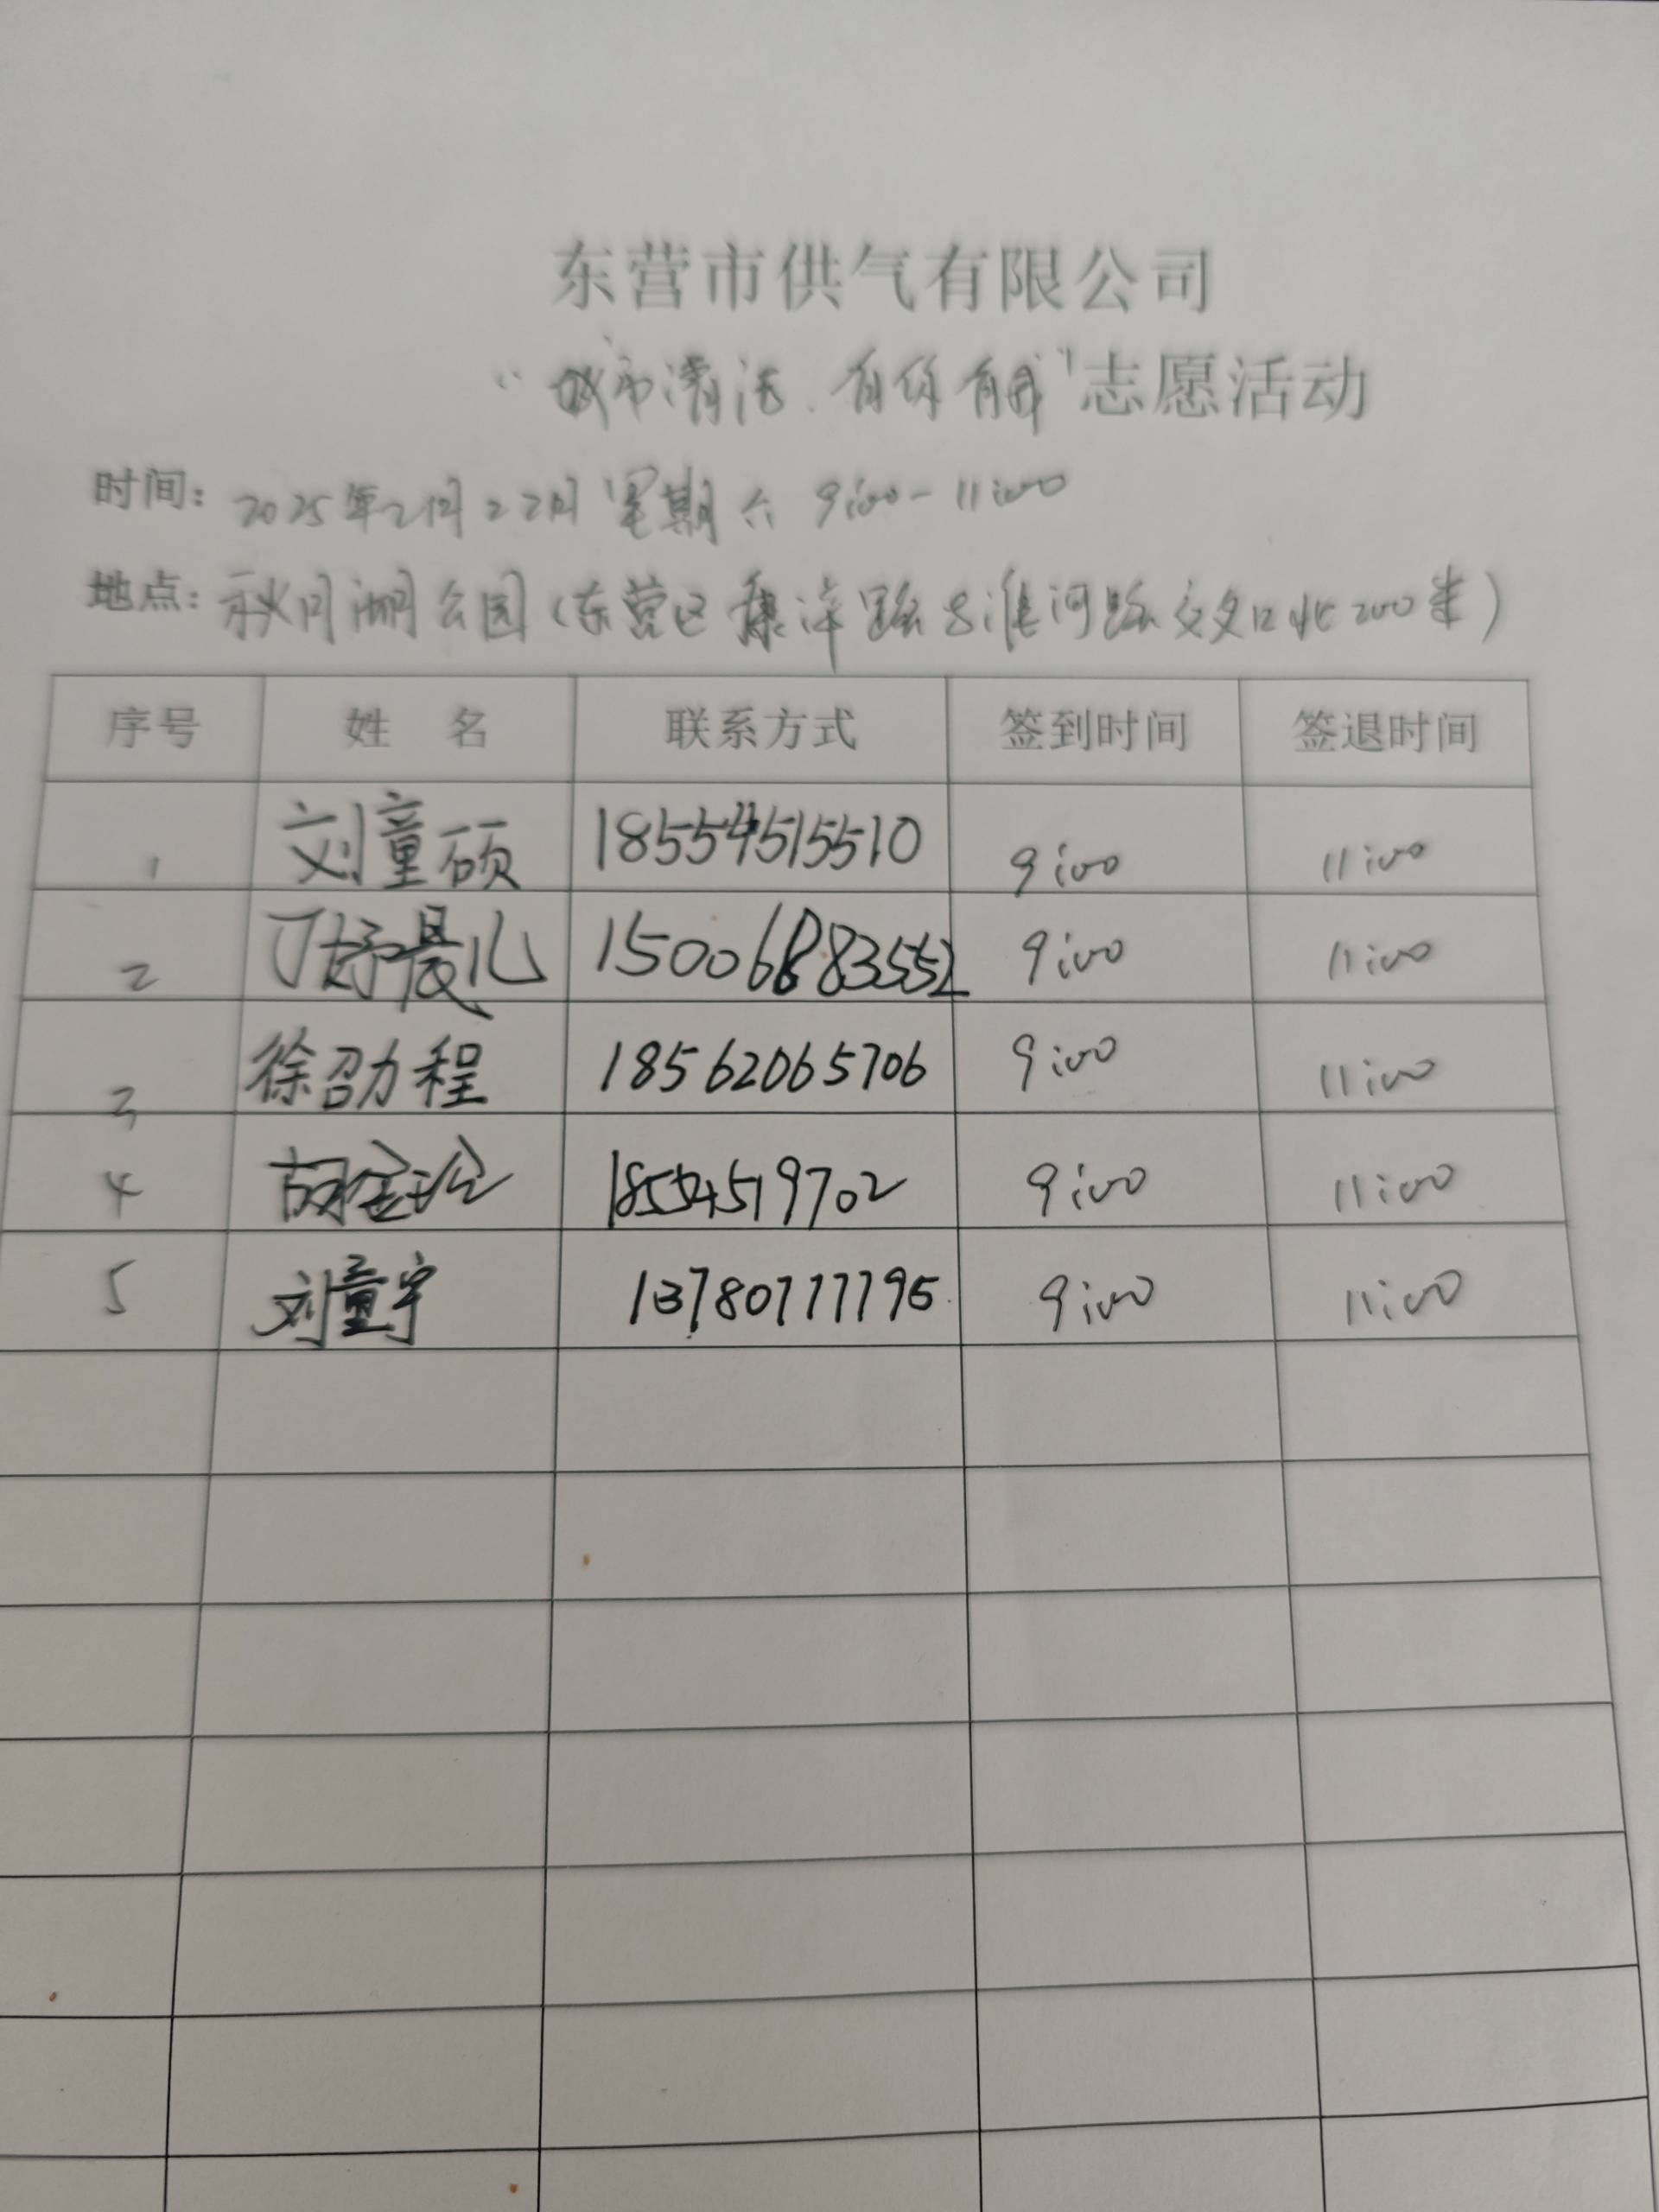 东营市供气有限公司
“城市清洁.有你有我”志愿活动
时间：2025年2月22日 星期六 9:00-11:00
地点：秋月湖公园（东营区康洋路与淮河路交叉口北200米）
序号 姓 名 联系方式 签到时间 签退时间
1 刘童硕 18554515510 9:00 11:00
2 丁妤晨儿 15006883552 9:00 11:00
3 徐劭程 18562065706 9:00 11:00
4 18554519702 9:00 11:00
5 刘童宇 13780777795 9:00 11:00